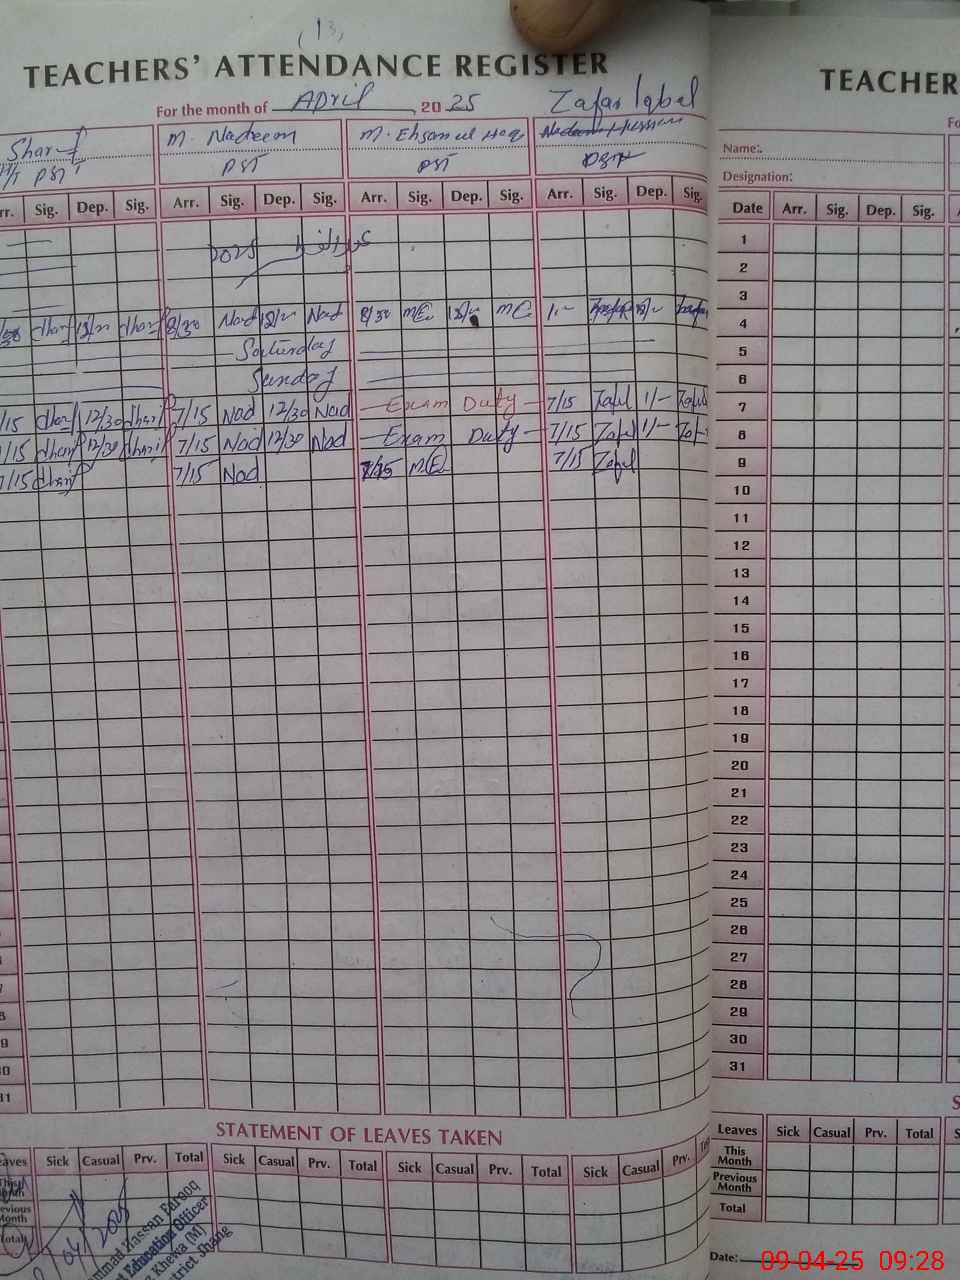 (13)
TEACHERS' ATTENDANCE REGISTER
For the month of April, 2025
Zafar Iqbal
Sharif
M. Nadeem
M. Ehsan ul Haq
PST
PST
PST
Arr. Sig. Dep. Sig. Arr. Sig. Dep. Sig. Arr. Sig. Dep. Sig. Arr. Sig. Dep. Sig.
2025
Sharif 12/- Sharif 8/30 Nad 12/- Nad 8/30 ME 12/- ME 1/-
Saturday
Sunday
7/15 Sharif 12/30 Sharif 7/15 Nad 12/30 Nad Exam Duty 7/15 Zafar 1/- Zafar
7/15 Sharif 12/30 Sharif 7/15 Nad 12/30 Nad Exam Duty 7/15 Zafar 1/- Zaf
7/15 Sharif 7/15 Nad 7/15 ME 7/15 Zafar
STATEMENT OF LEAVES TAKEN
Leaves Sick Casual Prv. Total Sick Casual Prv. Total Sick Casual Prv. Total Sick Casual Prv.
This Month
Previous Month
Total
04/2025
Hassan Farooq
Education Officer
Khewa (M)
District Jhang
TEACHER
Name:
Designation:
Date Arr. Sig. Dep. Sig.
1
2
3
4
5
6
7
8
9
10
11
12
13
14
15
16
17
18
19
20
21
22
23
24
25
26
27
28
29
30
31
Leaves Sick Casual Prv. Total
This Month
Previous Month
Total
Date:
09-04-25 09:28